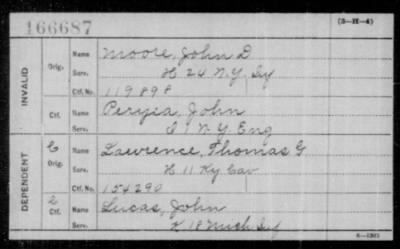 166687
(3-H-4)
INVALID
Orig.
Name Moore, John D
Serv. H 24 N.Y. Inf
Ctf. No. 119898
Ctf.
Name Peryea, John
Serv. I 1 N.Y. Eng
DEPENDENT
C
Orig.
Name Lawrence, Thomas G
Serv. H 11 Ky Cav
Ctf. No. 154290
C
Ctf.
Name Lucas, John
Serv. K 18 Mich Inf
6-1301